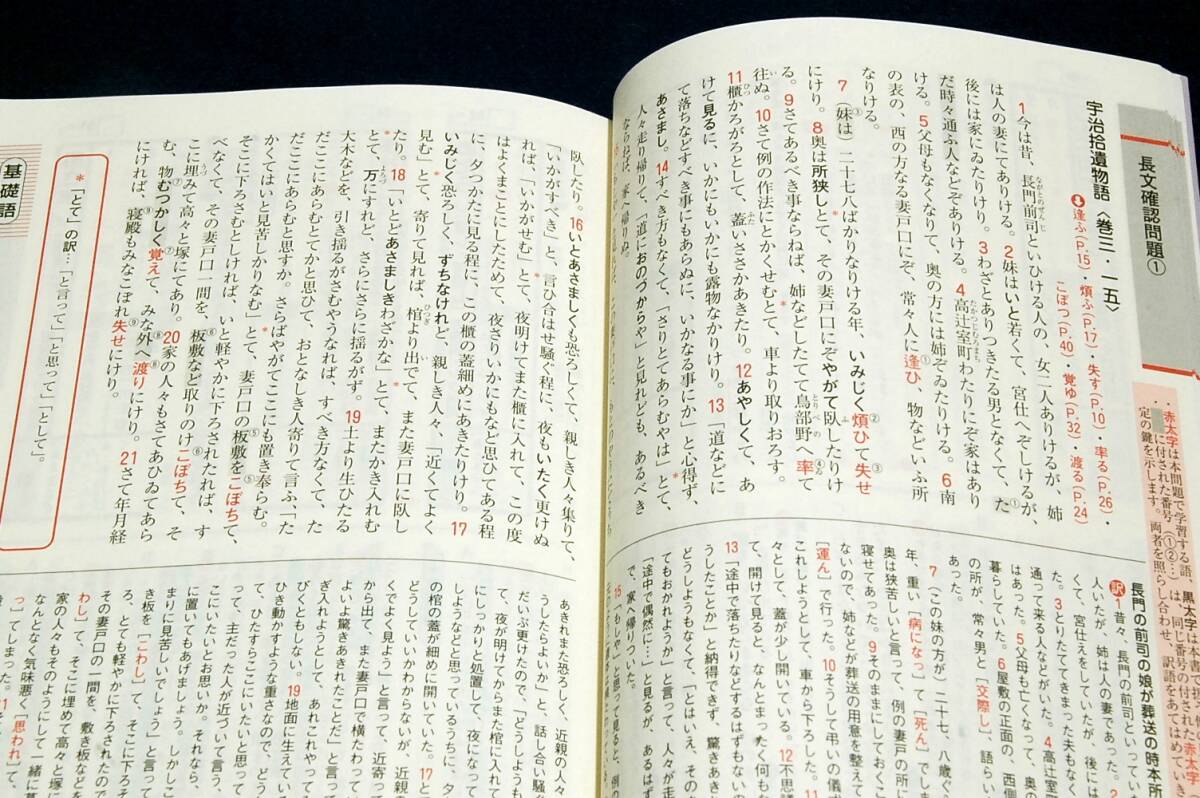 長文確認問題①
・赤太字は本問題で学習する語
黒太字は本
に付された番号(①②…)は、同じ番号の付された赤太字
定の鍵を示します。両者を照らし合わせ、訳語をあてはめていき
宇治拾遺物語〈巻三・一五〉
逢ふ(P.15)・煩ふ(P.17)・失す(P.10)・率る(P.26)・
こぼつ(P.40)・覚ゆ(P.32)・渡る(P.24)
1今は昔、長門前司といひける人の、女二人ありけるが、姉
は人の妻にてありける。2妹はいと若くて、宮仕へぞしけるが、
後には家にゐたりけり。3わざとありつきたる男となくて、た
だ時々通ふ人などぞありける。4高辻室町わたりにぞ家はあり
ける。5父母もなくなりて、奥の方には姉ぞゐたりける。6南
の表の、西の方なる妻戸口にぞ、常々人に逢ひ、物などいふ所
なりける。
7(妹は)二十七八ばかりなりける年、いみじく煩ひて失せ
にけり。8奥は所狭しとて、その妻戸口にぞやがて臥したりけ
る。9さてあるべき事ならねば、姉などしたてて鳥部野へ率て
往ぬ。10さて例の作法にとかくせむとて、車より取りおろす。
11櫃かろがろとして、蓋いささかあきたり。12あやしくて、あ
けて見るに、いかにもいかにも露物なかりけり。13「道などに
て落ちなどすべき事にもあらぬに、いかなる事にか」と心得ず、
あさまし。14すべき方もなくて、「さりとてあらむやは」とて、
人々走り帰りて、「道におのづからや」と見れども、あるべき
ならねば、家へ帰りぬ。
臥したり。16いとあさましくも恐ろしくて、親しき人々集りて、
「いかがすべき」と、言ひ合はせ騒ぐ程に、夜もいたく更けぬ
れば、「いかがせむ」とて、夜明けてまた櫃に入れて、この度
はよくまことにしたためて、夜さりいかにもなど思ひてある程
に、夕つかたに見る程に、この櫃の蓋細めにあきたりけり。17
いみじく恐ろしく、ずちなけれど、親しき人々、「近くてよく
見む」とて、寄りて見れば、棺より出でて、また妻戸口に臥し
たり。18「いとどあさましきわざかな」とて、またかき入れむ
とて、万にすれど、さらにさらに揺るがず。19土より生ひたる
大木などを、引き揺るがさむやうなれば、すべき方なくて、た
だここにあらむとてかと思ひて、おとなしき人寄りて言ふ、「た
だここにあらむと思すか。さらばやがてここにも置き奉らむ。
かくてはいと見苦しかりなむ」とて、妻戸口の板敷をこぼちて、
そこに下ろさむとしければ、いと軽やかに下ろされたれば、す
べなくて、その妻戸口一間を、板敷など取りのけこぼちて、そ
こに埋みて高々と塚にてあり。20家の人々もさてあひゐてあら
む、物むつかしく覚えて、みな外へ渡りにけり。21さて年月経
にければ、寝殿もみなこぼれ失せにけり。
*「とて」の訳…「と言って」「と思って」「として」。
基礎語
長門の前司の娘が葬送の時本所
訳1昔々、長門の前司といってい
人いたが、姉は人の妻であった。2
くて、宮仕えをしていたが、後には
た。3とりたててきまった夫もなく
通って来る人などがいた。4高辻室
はあった。5父母も亡くなって、奥の
た。6屋敷の正面の、西側
の所が、常々男と[交際し]、語ら
あった。
7(この妹の方が)二十七、八歳ぐら
年、重い[病になって]て[死ん]でしま
奥は狭苦しいと言って、例の妻戸の所に
寝せてあった。9そのままにしておくこ
ないので、姉などが葬送の用意を整えて
[運ん]で行った。10そうして弔いの儀
これしようとして、車から下ろした。11
て、蓋が少し開いている。12不思議
て、開けて見ると、なんとまったく何も
13「途中で落ちたりなどするはずもない
うしたことか」と納得できず、驚きあき
どうしようもなくて、「とはいえ、そのま
てもおかれまい」と言って、人々が走
「途中で偶然に…」と見るが、あるはず
で、家へ帰りついた。
15「もしや」と思って見ると、例の
あきれまた恐ろしく、近親の人々
うしたらよいか」と、話し合い騒ぐ
だいぶ更けたので、「どうしようも
て、夜が明けてからまた棺に入れて
にしっかりと処置して、夜になった
しようなどと思っているうちに、夕
の棺の蓋が細めに開いていた。17と
どうしていいかわからないが、近親
くでよく見よう」と言って、近寄っ
から出て、また妻戸口で横たわって
よいよ驚きあきれたことだ」と言っ
ぎ入れようとして、あれこれやって
びくともしない。19地面に生えてい
ひき動かすような重さなので、どう
て、ひたすらここにいたいと思って
って、主だった人が近づいて言う
こにいたいとお思いか。それなら、
に置いてもあげましょう。しかしこ
まりに見苦しいでしょう」と言って
き板を[こわし]て、そこに下ろそ
ろ、とても軽やかに下ろされたので
その妻戸口の一間を、敷き板などを
わし]て、そこに埋めて高々と塚に
家の人々もそのようにして一緒に暮
なんとなく気味悪く[思われ]て、
っ]てしまった。21